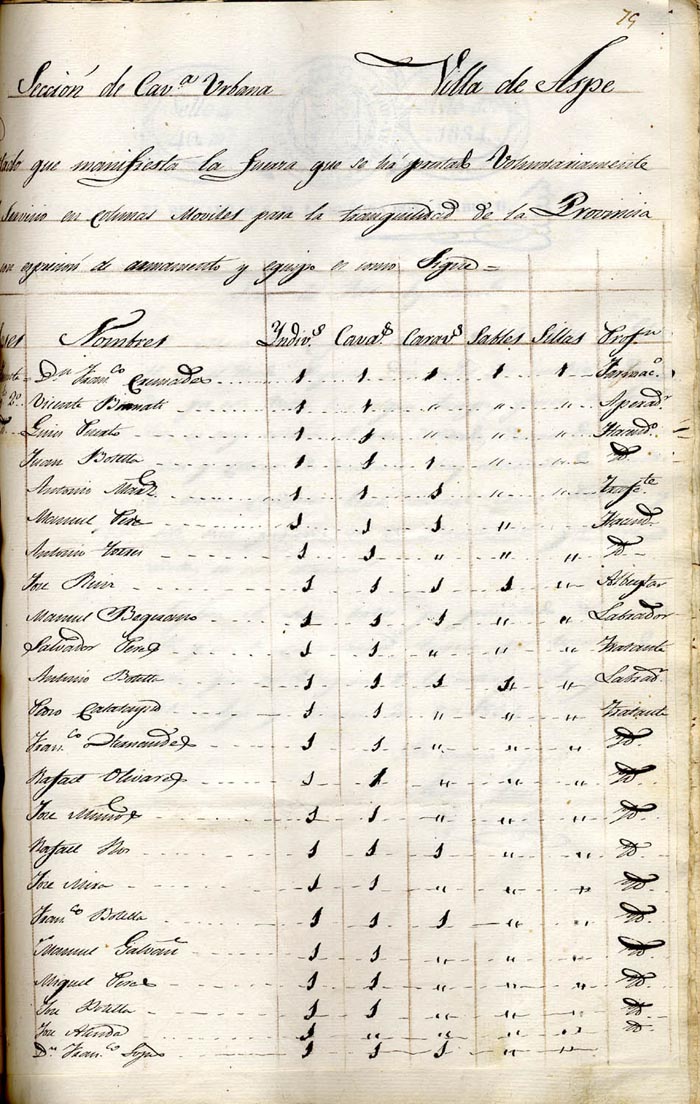 79
Sección de Cav.ª Urbana Villa de Aspe
que manifiesta la fuerza que se ha prestado Voluntariamente
Servicio en columnas Moviles para la tranquilidad de la Provincia
espresion de armamento y equipo es como Sigue =
Nombres Indiv.s Cava.s Carav.s Sables Sillas Prof.n
D.n Fran.co 1 1 1 1 1 Farmac.o
2º. Vicente 1 1 " " " Aperad.r
1 1 " " " Hacend.o
Juan Botella 1 1 1 " " Yd.
Antonio 1 1 1 " "
Manuel Perez 1 1 1 " " Hacend.
Antonio 1 1 " " " Yd.
Jose Ruiz 1 1 1 1 " Albeytar
Manuel 1 1 1 " " Labrador
Salvador Perez 1 1 " " " Tratante
Antonio Botella 1 1 1 1 " Labrad.r
Pedro Calatayud 1 1 " " " Tratante
Fran.co Hernandez 1 1 " " " Yd.
Rafael Olivares 1 1 " " " Yd.
Jose Muñoz 1 1 " " " Yd.
Rafael 1 1 1 " " Yd.
Jose Mira 1 1 " " " Yd.
Fran.co Botella 1 1 1 " " Yd.
Manuel Galvañ 1 1 " " " Yd.
Miguel Perez 1 1 " " " Yd.
Jose Botella 1 1 " " " Yd.
Jose 1 " " " " Yd.
D.n Fran.co 1 1 1 " "